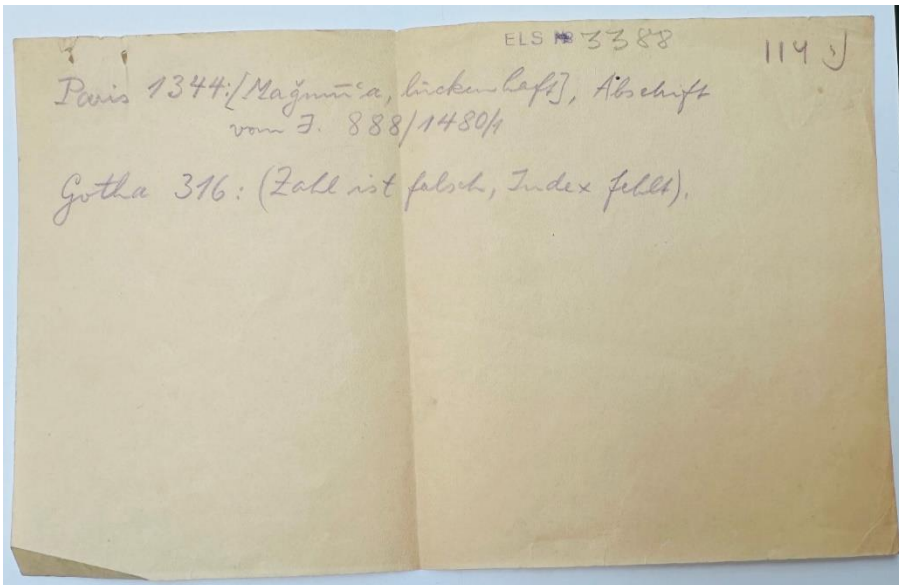 ELS 3388
114
Paris 1344: [Maǧmū'a, lückenhaft], Abschrift
vom J. 888/1480/1
Gotha 316: (Zahl ist falsch, Index fehlt).